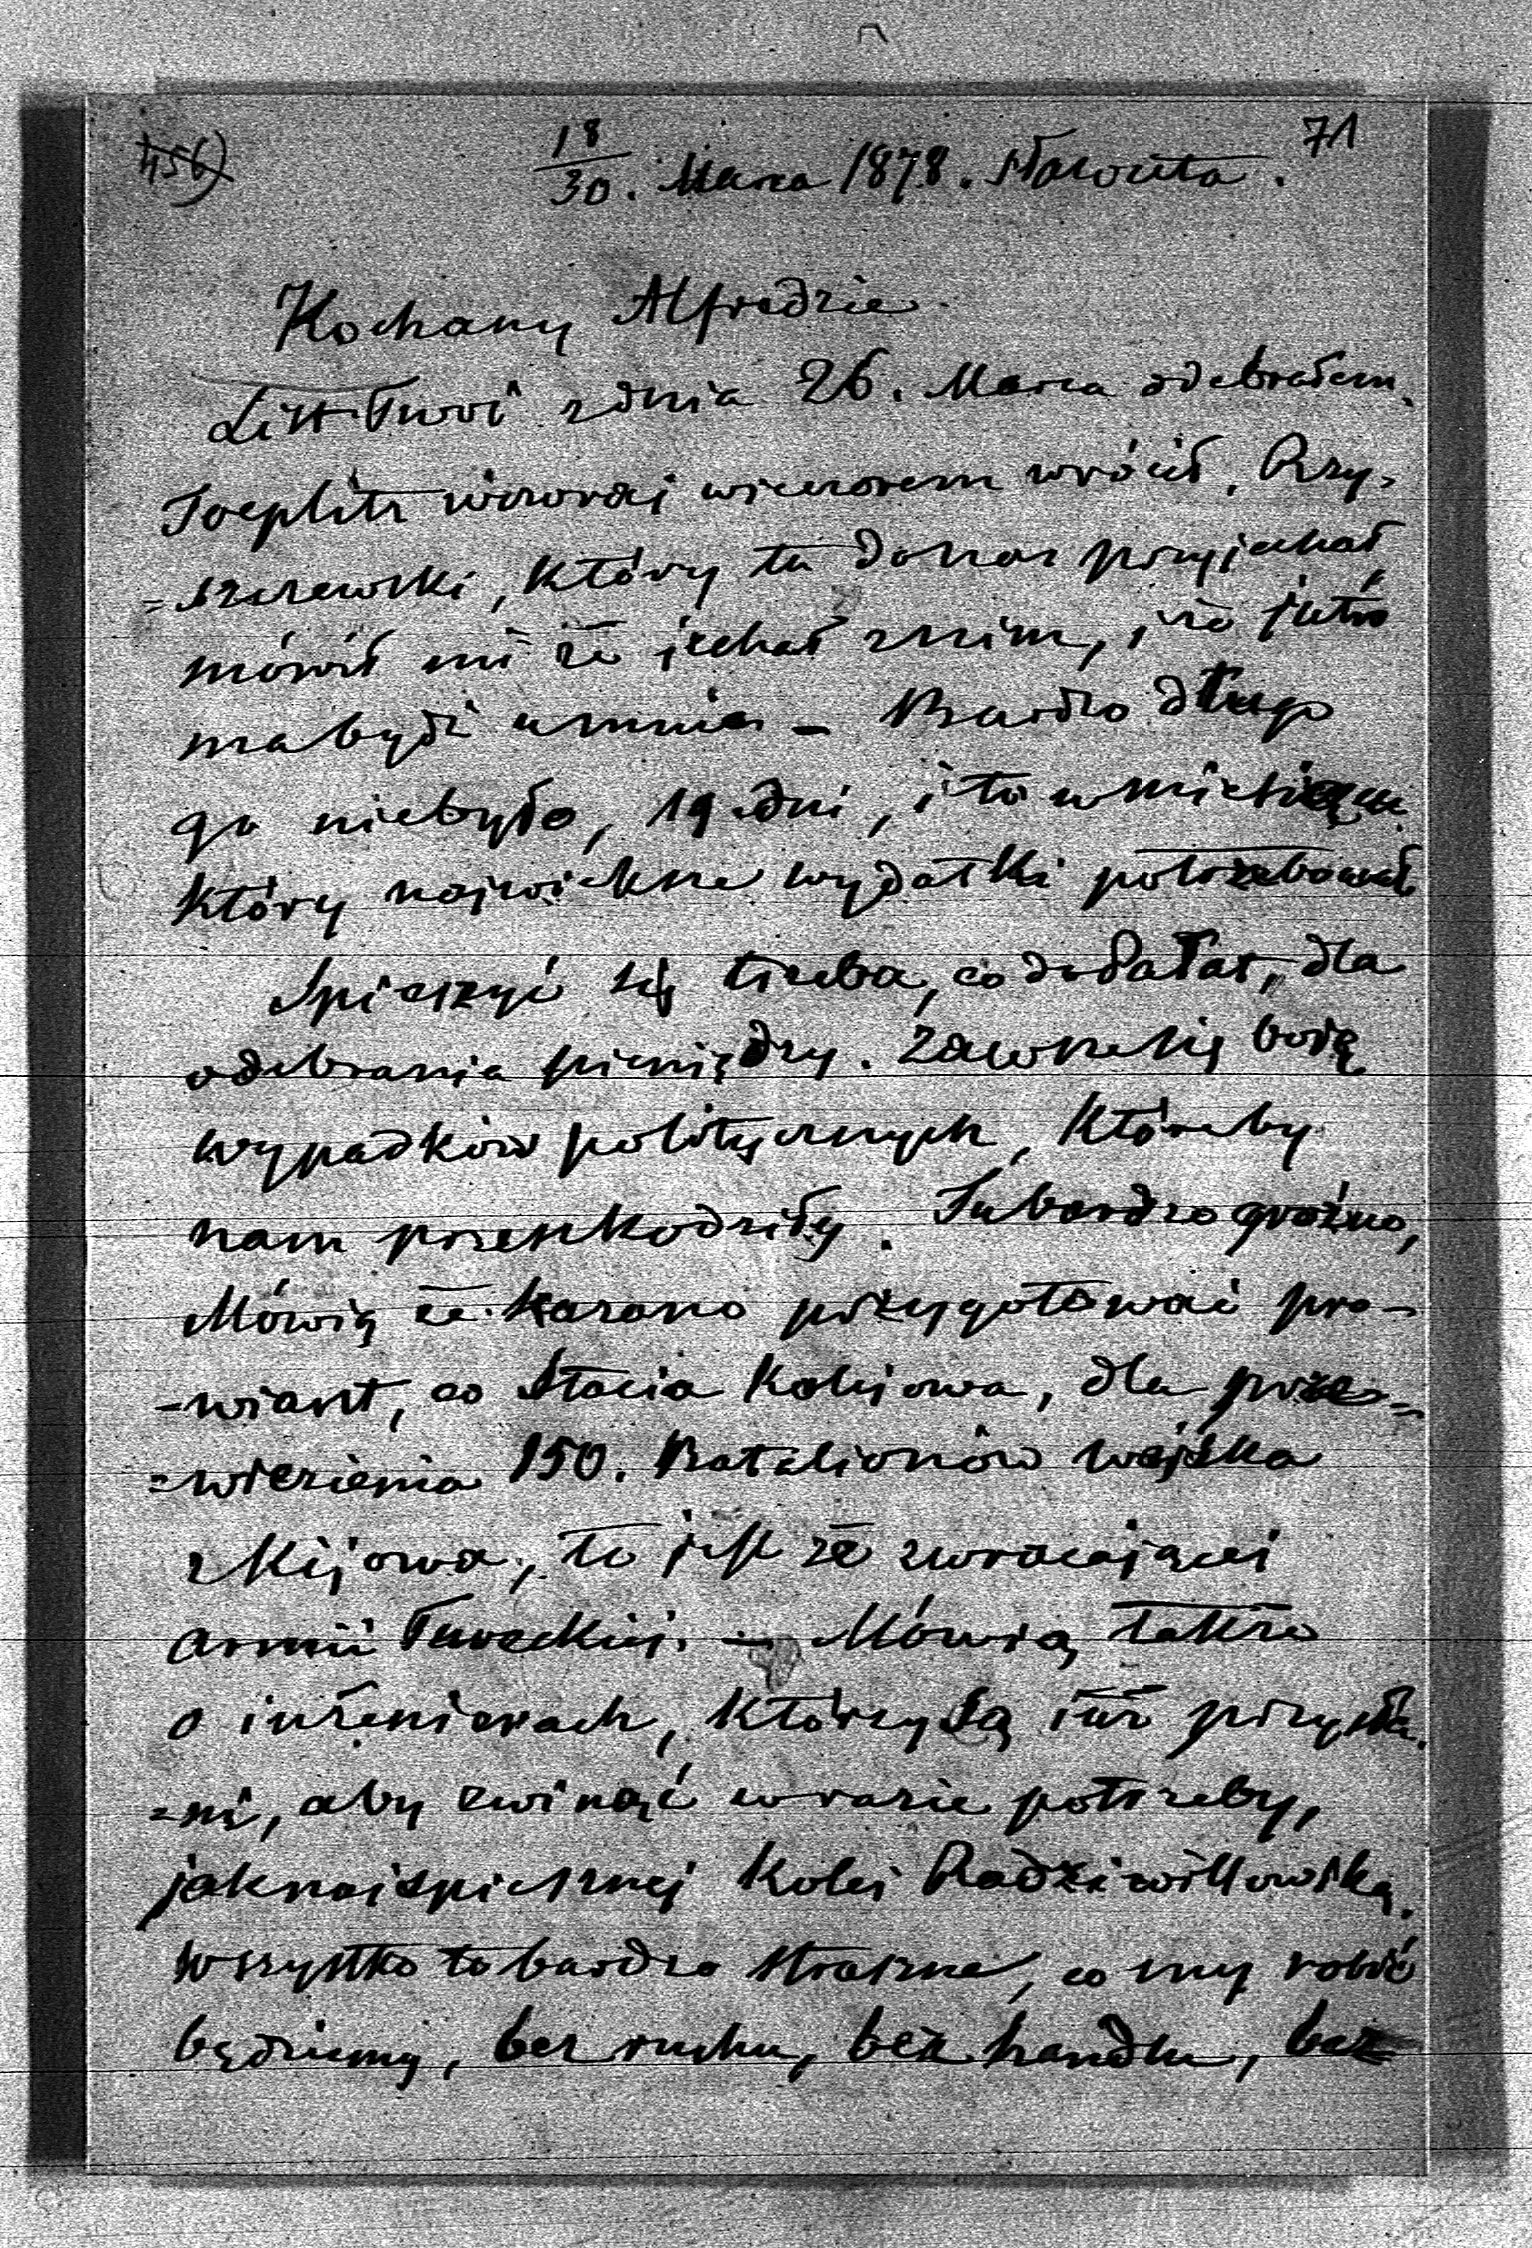 456)
18/30. Marca 1878. Sławuta.
71
Kochany Alfredzie
List Twoi z dnia 26. Marca odebrałem.
Toeplitz wczoraj wieczorem wrócił. Rzy=
=szczewski, który tu do nas przyjechał
mówił mi że jechał z nim, i że jutro
ma bydź u mnie – Bardzo długo
go niebyło, 19. dni, i to w miesiącu
który najwieksze wydatki potrzebował
Spieszyć się trzeba, co do dałas, dla
odebrania pieniędzy. Zawsze się boję
wypadków politycznych, któreby
nam przeszkodziły. Tu bardzo groźno,
Mówią że kazano przygotować pro-
-wiant, co Stacia Kolejowa, dla prze=
=wiezienia 150. Batalionów wojska
z Kijowa, to jest ze zwracającei
armii Tureckiej. – Mówią także
o inżenierach, którzy są iuż przysła=
=ni, aby zwinąć w razie potrzeby,
jaknaispieszniej Kolej Radziwiłłowską.
Wszystko to bardzo straszne, co my robić
będziemy, bez ruchu, bez handlu, bez